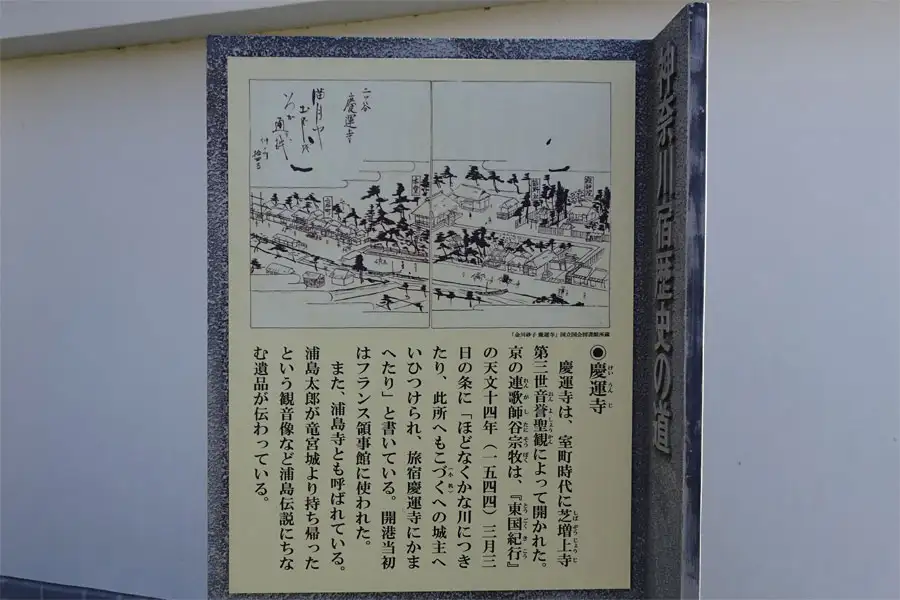 神奈川宿歴史の道
二ツ谷
慶運寺
本堂
「金川砂子 慶運寺」国立国会図書館所蔵
●慶運寺
けいうんじ
慶運寺は、室町時代に芝増上寺
しばぞうじょうじ
第三世音誉聖観によって開かれた。
おんよしょうかん
京の連歌師谷宗牧は、『東国紀行』
れんがしたにそうぼく
とうごくきこう
の天文十四年（一五四四）三月三
日の条に「ほどなくかな川につき
たり、此所へもこづくへの城主へ
いひつけられ、旅宿慶運寺にかま
へたり」と書いている。開港当初
はフランス領事館に使われた。
また、浦島寺とも呼ばれている。
浦島太郎が竜宮城より持ち帰った
という観音像など浦島伝説にちな
む遺品が伝わっている。